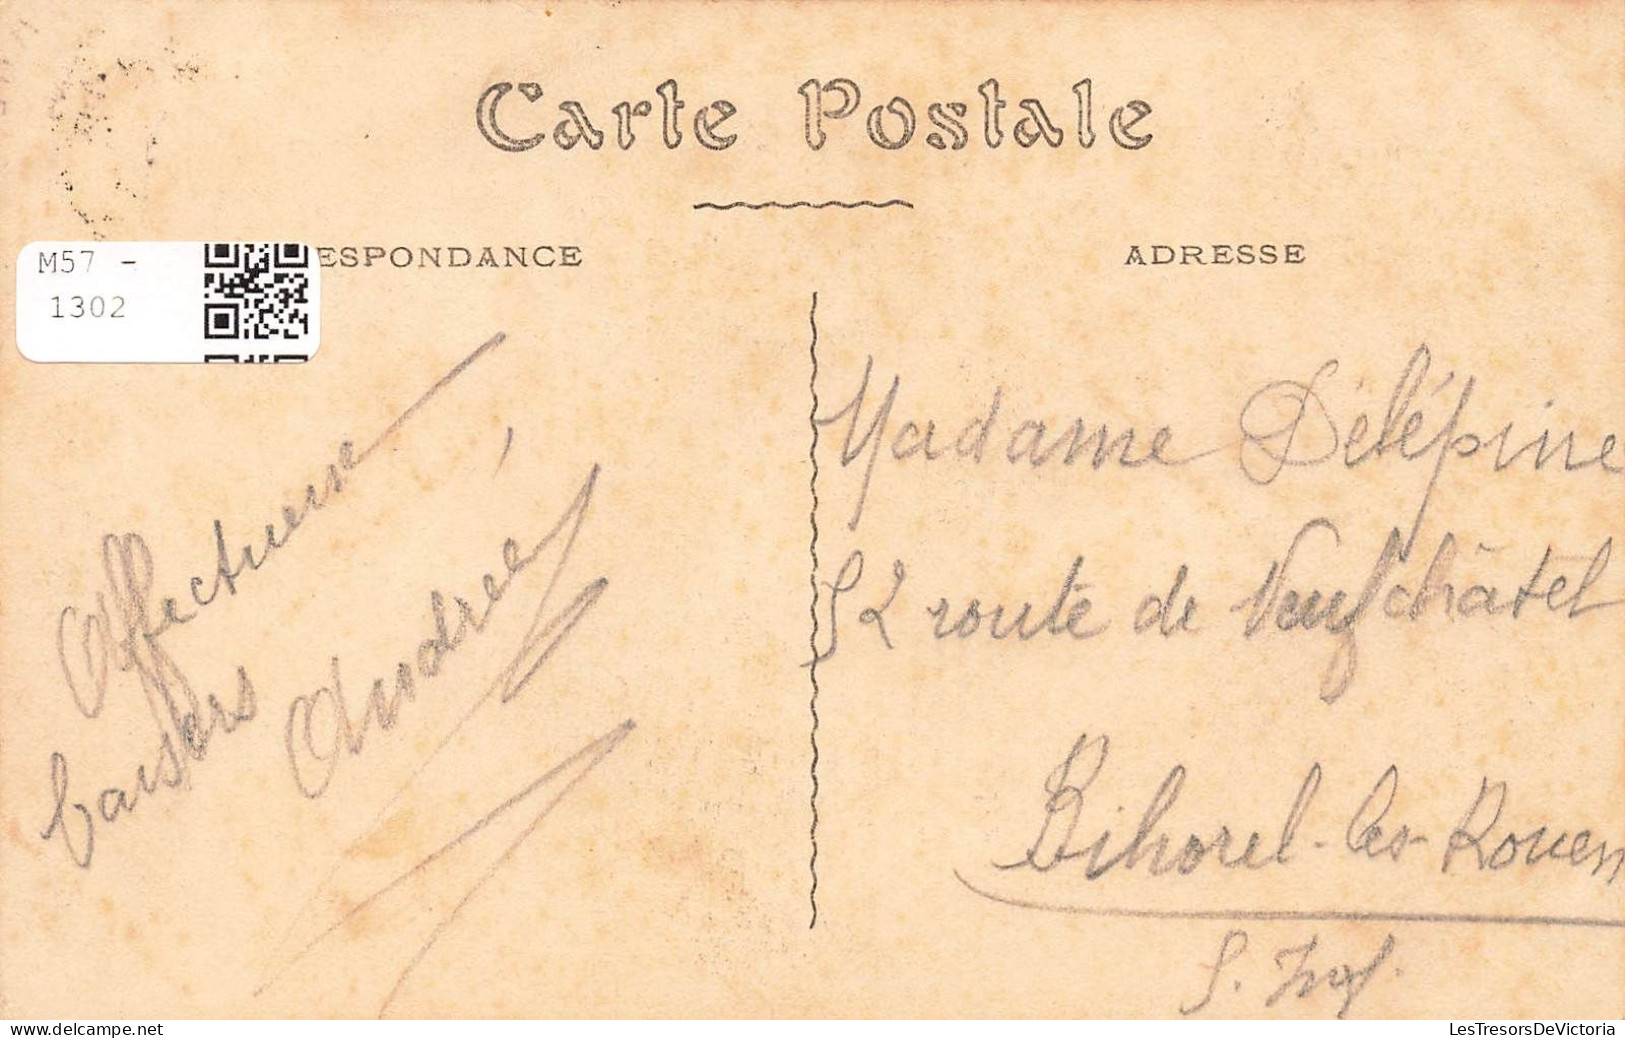 Carte Postale
ESPONDANCE
ADRESSE
M57 -
1302
Affectueux
baisers
Andrée
Madame Délépine
52 route de Neufchâtel
Bihorel-les-Rouen
S. Inf.
LesTresorsDeVictoria
delcampe.net